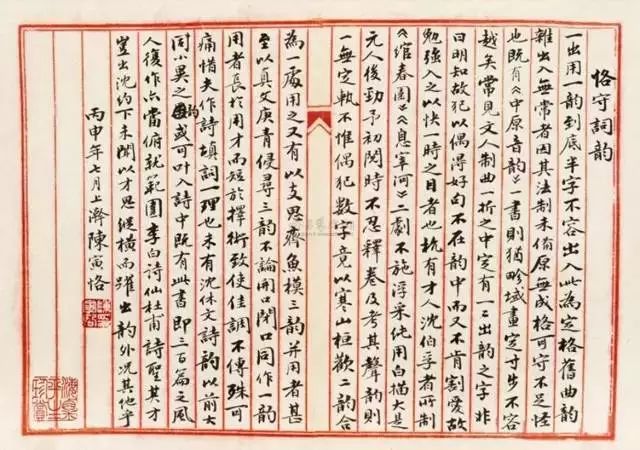 恪守詞韻
一出用一韻到底半字不容出入此為定格舊曲韻
雜出入無常者因其法制未備原無成格可守不足怪
也既有《中原音韻》一書則猶畛域畫定寸步不容
越矣常見文人制曲一折之中定有一二出韻之字非
曰明知故犯以偶得好句不在韻中而又不肯割愛故
勉強入之以快一時之目者也杭有才人沈伯孚者所制
《綰春園》《息宰河》二劇不施浮采純用白描大是
元人後勁予初閱時不忍釋卷及考其聲韻則
一無定軌不惟偶犯數字竟以寒山桓歡二韻合
為一處用之又有以支思齊魚模三韻並用者甚
至以真文庚青侵尋三韻不論開口閉口同作一韻
用者長於用才而短於擇術致使佳調不傳殊可
痛惜夫作詩填詞一理也未有沈休文詩韻以前大
同小異之韻或可叶入詩中既有此書即三百篇之風
人復作亦當俯就範圍李白詩仙杜甫詩聖其才
豈出沈約下未聞以才思縱橫而躍出韻外況其他乎
丙申年七月上澣陳寅恪